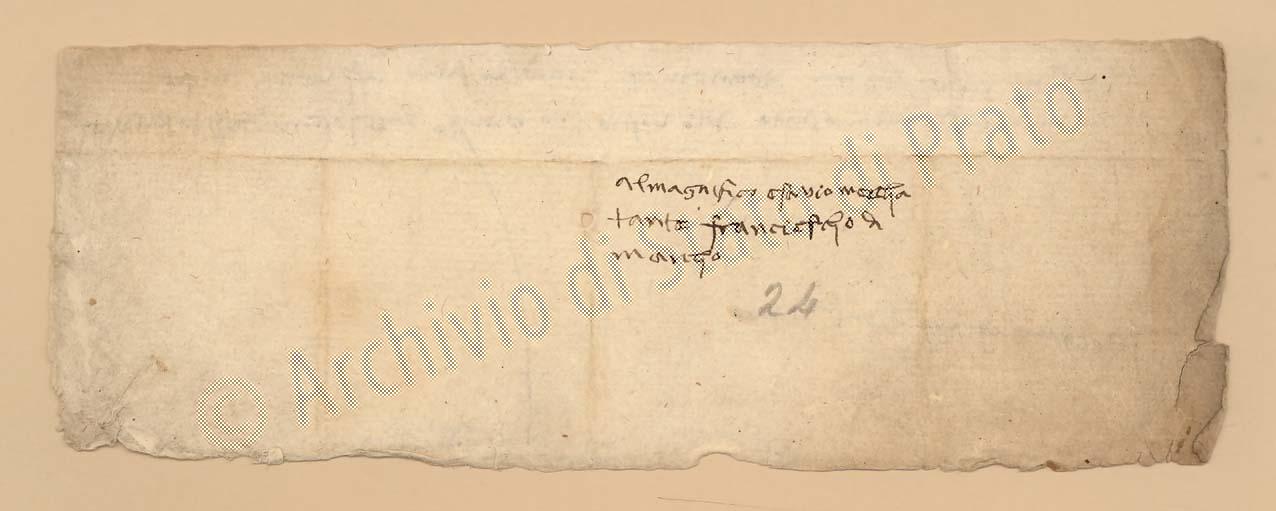 al magnifico e savio mercha
tante franciescho di
marcho
24
© Archivio di Stato di Prato